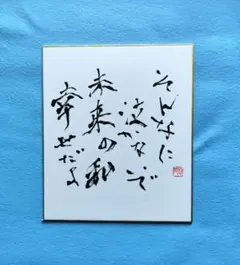 そんなに
泣かないで
未来の私
幸せだよ